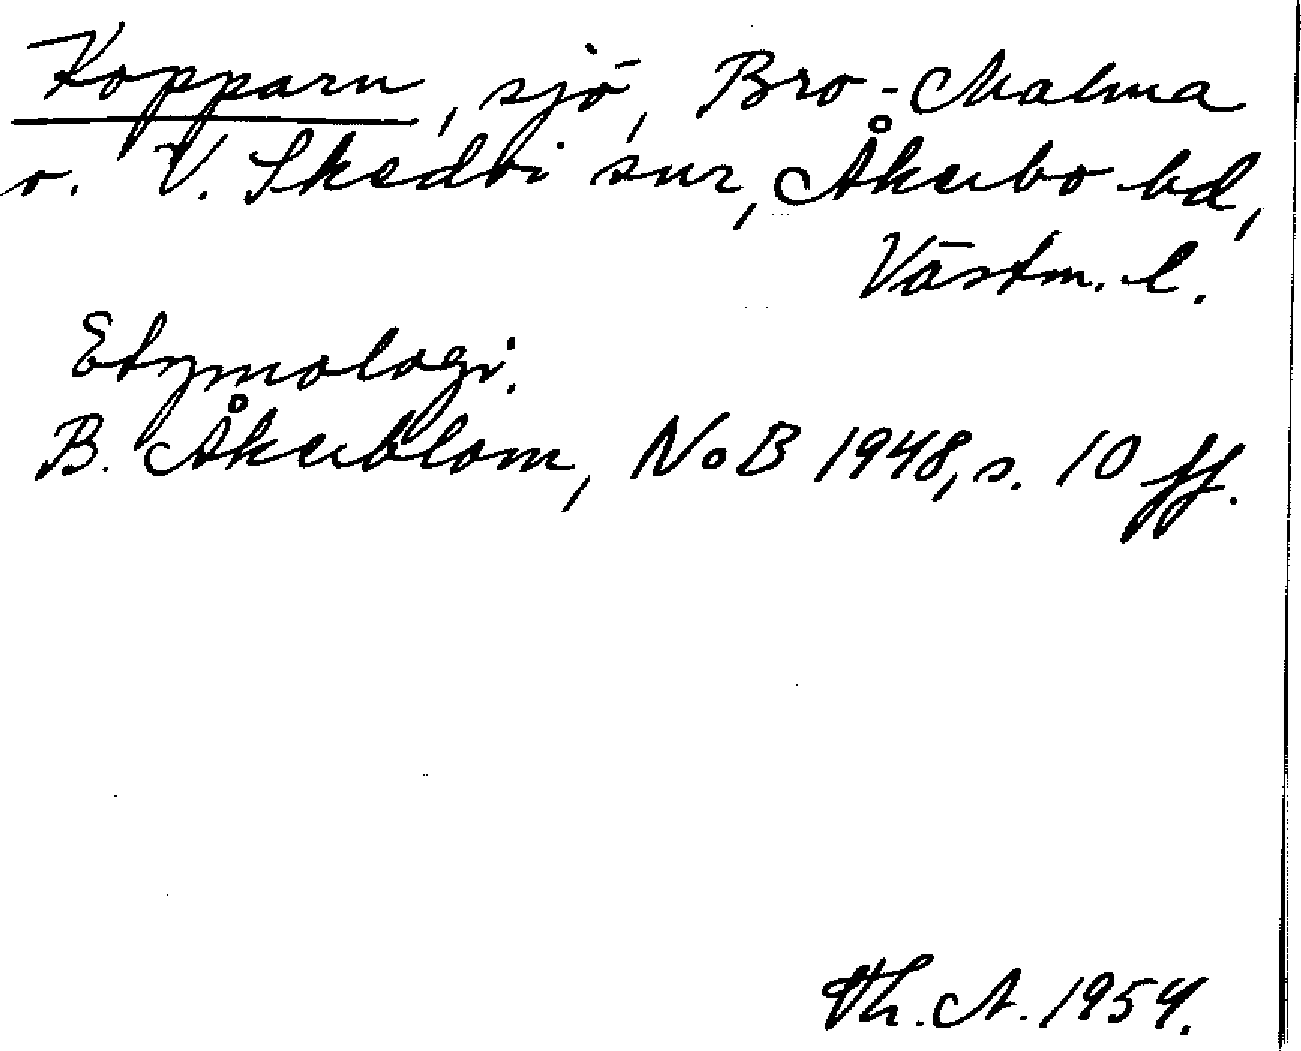 Kopparn, sjö, Bro-Malma
o. V. Skedvi snr, Åkerbo hd,
Västm. l.
Etymologi.
B. Åkerblom, NoB 1948, s. 10 ff.
Th. A. 1954.